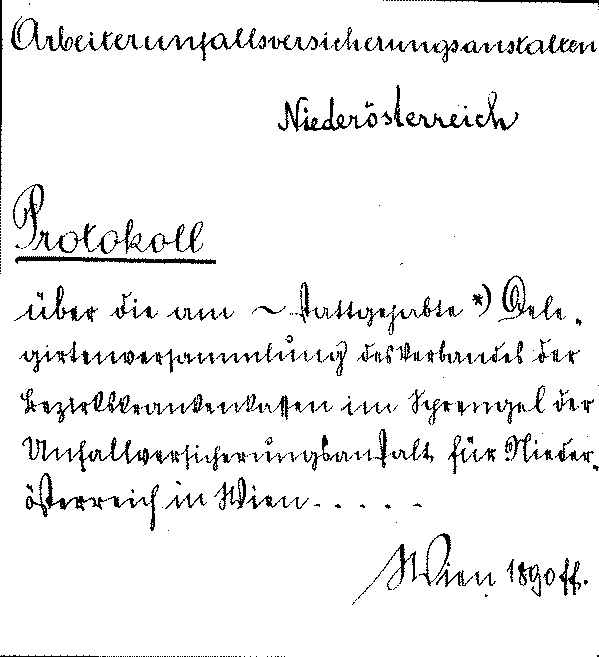 Arbeiterunfallsversicherungsanstalten
Niederösterreich
Protokoll
über die am ~ stattgehabte *) Dele-
girtenversammlung des Verbandes der
Bezirkskrankenkassen im Sprengel der
Unfallversicherungsanstalt für Nieder-
österreich in Wien.....
Wien 1890 ff.